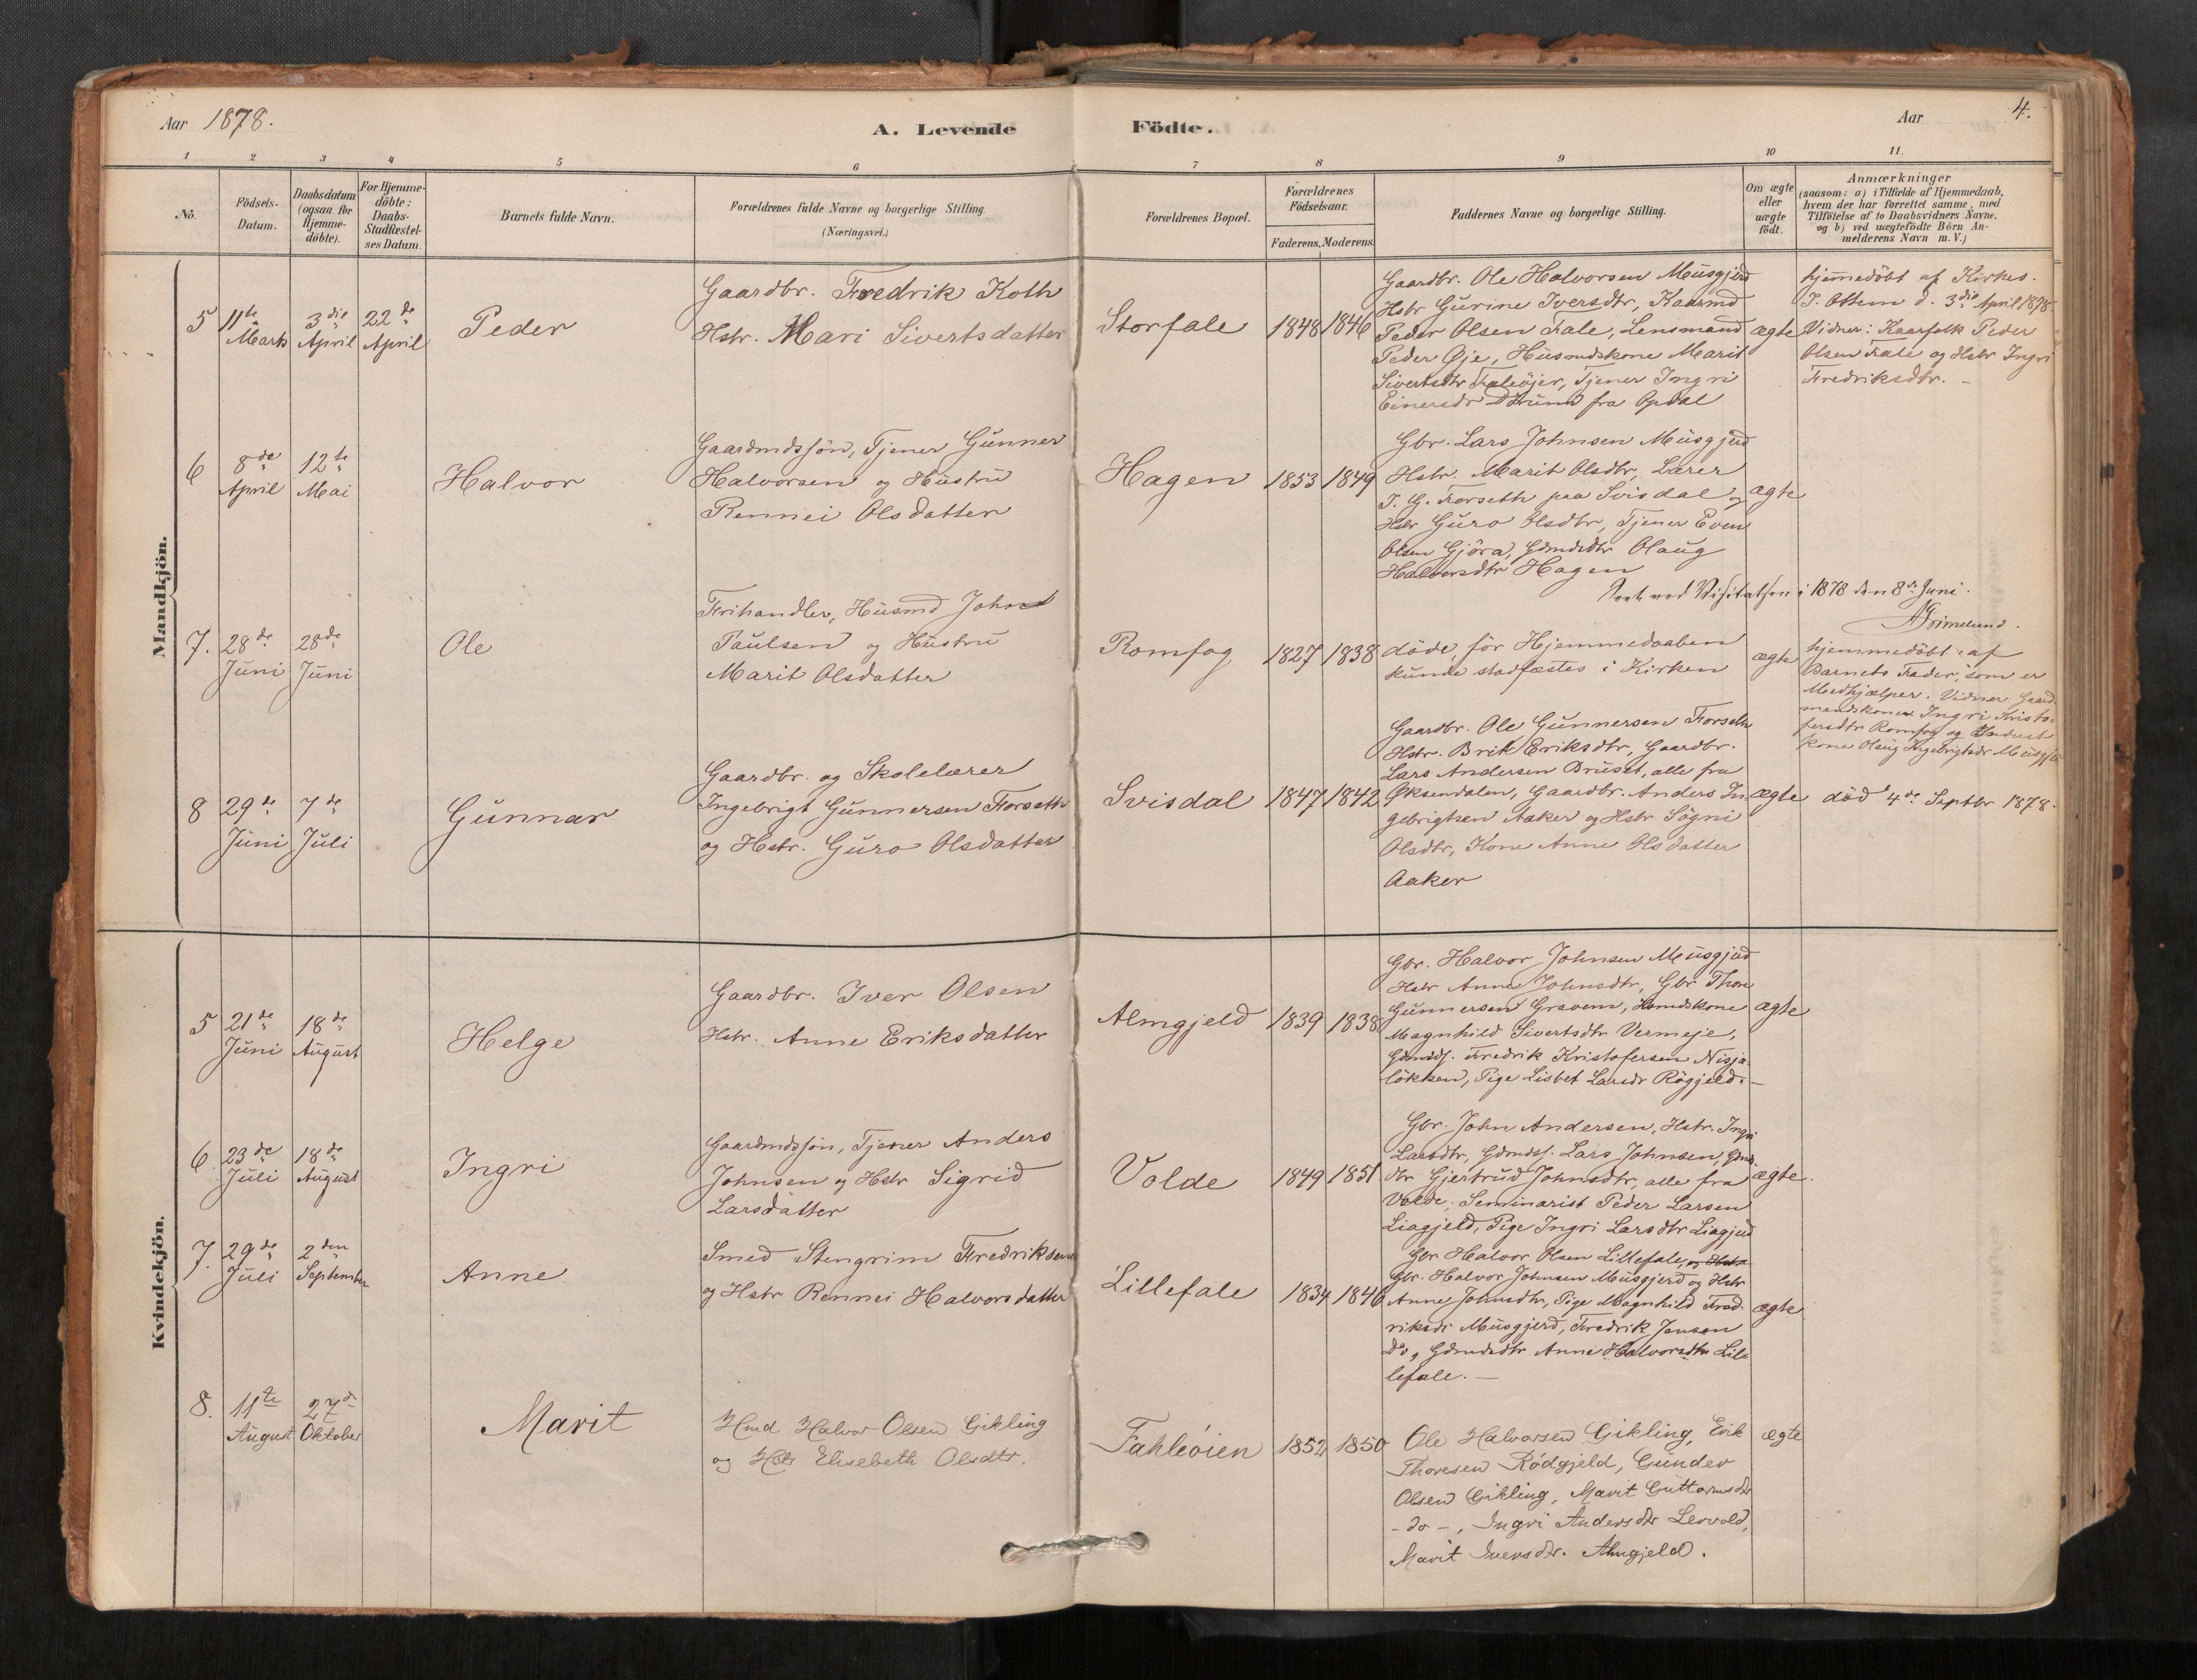 Aar 1878.
A. Levende Födte.
Aar
4.
1 2 3 4 5 6 7 8 9 10 11.
No.
Födsels-Datum.
Daabsdatum (ogsaa for Hjemme-döbte).
For Hjemme-döbte: Daabs-Stadfæstel-ses Datum.
Barnets fulde Navn.
Forældrenes fulde Navne og borgerlige Stilling. (Næringsvei.)
Forældrenes Bopæl.
Forældrenes Födselsaar.
Faderens. Moderens.
Faddernes Navne og borgerlige Stilling.
Om ægte eller uægte födt.
Anmærkninger
(saasom: a) i Tilfælde af Hjemmedaab,
hvem der har forrettet samme, med
Tilföielse af to Daabsvidners Navne,
og b) ved uægtefödte Börn An-
melderens Navn m. V.)
Mandkjön.
5
11te Marts
3die April
22de April
Peder
Gaardbr. Fredrik Koth
Hstr. Mari Sivertsdatter
Storfale
1848 1846
Gaardbr. Ole Halvorsen Musgjerd
Hstr Gurine Iversdtr, Kaarmd
Peder Olsen Fale, Lensmand
Peder Øje, Husmdskone Marit
Sivertsdtr Faleöjer, Tjener Ingri
Einersdr fra Opdal
ægte
hjemmedöbt af Kirkes.
T. Ottem d. 3die April 1878.
Vidner: Kaarfolk Peder
Olsen Fale og Hstr Ingri
Fredriksdtr. -
6
8de April
12te Mai
Halvor
Gaardmdssön, Tjener Gunner
Halvorsen og Hustru
Rennei Olsdatter
Hagen
1853 1849
Gbr. Lars Johnsen Musgjerd
Hstr. Marit Olsdtr, Lærer
I. G. Forseth paa Svisdal og
Hstr Guro Olsdtr, Tjener Even
Olsen Gjöra, Gdmdsdtr Olaug
Halvorsdtr Hagen
ægte
ved Visitatsen i 1878 den 8de Juni.
Grimelund.
7.
28de Juni
28de Juni
Ole
Frihandler, Husmd John
Paulsen og Hustru
Marit Olsdatter
Romfog
1827 1838
döde, för Hjemmedaaben
kunde stadfæstes i Kirken
ægte
hjemmedöbt af
Barnets Fader, som er
Medhjælper. Vidner: Gaard
mandskone Ingri Kristo-
fersdtr Romfog og
kone Olaug Ingebrigtsdr Musgje
8
29de Juni
7de Juli
Gunnar
Gaardbr. og Skolelærer
Ingebrigt Gunnersen Forseth
og Hstr. Guro Olsdatter
Svisdal
1847 1842
Gaardbr. Ole Gunnersen Forseth
Hstr. Brit Eriksdtr, Gaardbr.
Lars Andersen Bruset, alle fra
Øksendalen, Gaardbr. Anders In-
gebrigtsen Aaker og Hstr Sögni
Olsdtr, Kone Anne Olsdatter
Aaker
ægte
död 4de Septbr 1878.
Kvindekjön.
5
21de Juni
18de August
Helge
Gaardbr. Iver Olsen
Hstr. Anne Eriksdatter
Almgjeld
1839 1838
Gbr. Halvor Johnsen Musgjerd
Hstr Anne Johnsdtr, Gbr Thore
Gunnersen Gravem, Hsmdskone
Magnhild Sivertsdtr Vermeje,
Gdmdss. Fredrik Kristofersen Nisja-
lökken, Pige Lisbet Larsdr Rögjeld. -
ægte
6.
23de Juli
18de August
Ingri
Gaardmdssön, Tjener Anders
Johnsen og Hstr Sigrid
Larsdatter
Volde
1849 1851
Gbr. John Andersen, Hstr. Ingri
Larsdtr, Gdmdss. Lars Johnsen, Gdmds-
dtr Gjertrud Johnsdtr, alle fra
Volde, Seminarist Peder Larsen
Liagjeld, Pige Ingri Larsdtr Liagjeld
ægte.
7.
29de Juli
2den September
Anne
Smed Stengrim Fredriksen
og Hstr Rennei Halvorsdatter
Lillefale
1834 1846
Gbr Halvor Olsen Lillefale, og Hstr
Gbr. Halvor Johnsen Musgjerd og Hstr
Anne Johnsdtr, Pige Magnhild Fred-
riksdr Musgjerd, Fredrik Jensen
do, Gdmdsdtr Anne Halvorsdtr Lil-
lefale. -
ægte
8.
11te August
27de Oktober
Marit
Hmd Halvor Olsen Gikling
og Hstr Elisebeth Olsdtr.
Fahleöien
1852 1850
Ole Halvorsen Gikling, Erik
Thoresen Rödgjeld, Gunder
Olsen Gikling, Marit Guttormsdtr
- do -, Ingri Andersdtr Levold,
Marit Iversdtr. Almgjeld.
ægte